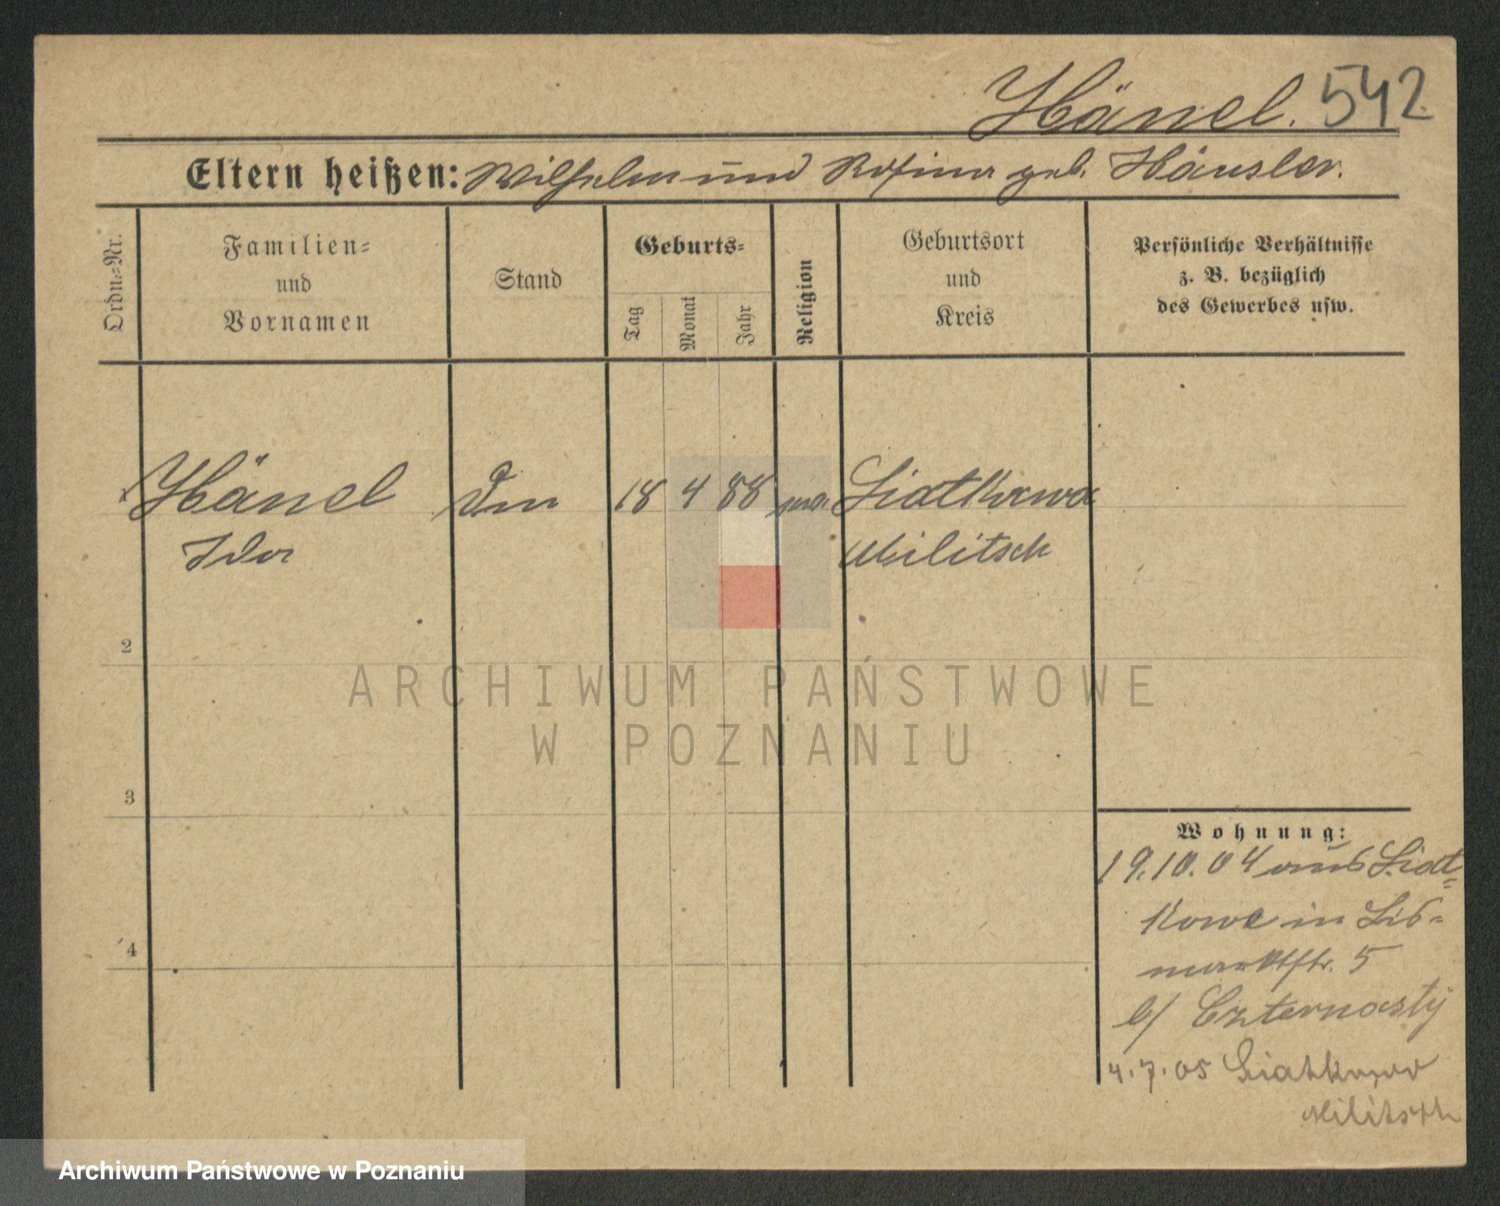 Hänel. 542
Eltern heißen: Wilhelm und Rosina geb. Häusler.
Ordn.-Nr.
Familien-
und
Vornamen
Stand
Geburts-
Tag
Monat
Jahr
Religion
Geburtsort
und
Kreis
Persönliche Verhältnisse
z. B. bezüglich
des Gewerbes usw.
Hänel 18 4 88 Liatkawe
Ida Militsch
2
3
4
Wohnung:
19.10.04 aus Liat-
kawe in Bis-
markstr. 5
b/ Czternasty
4.7.05 Liatkawe
Militsch
ARCHIWUM PAŃSTWOWE
W POZNANIU
Archiwum Państwowe w Poznaniu